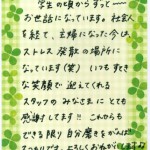 学生の頃からずっと〜〜
お世話になっています。社会人
を経て、主婦になった今は、
ストレス発散の場所に
なっています(笑) いつもすてき
な笑顔で迎えてくれる
スタッフのみなさまにとても
感謝してます!! これからも
できる限り自分磨きをがんばり
よろしくおねがいします